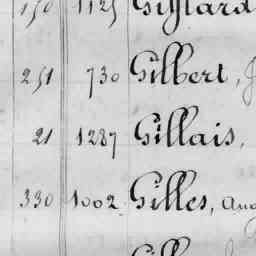 150 1125 Gislard
251 730 Gilbert, J
21 1287 Gillais,
330 1002 Gilles, Aug